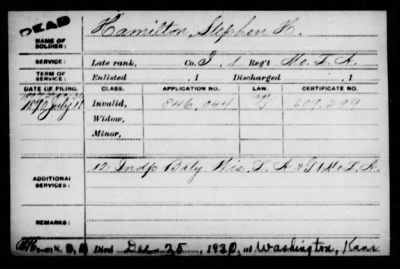 DEAD
NAME OF SOLDIER: Hamilton, Stephen H.
SERVICE: Late rank, Co. I, 1 Reg't Mo. L. A.
TERM OF SERVICE: Enlisted , 1 Discharged , 1
DATE OF FILING. CLASS. APPLICATION NO. LAW. CERTIFICATE NO.
1890 July 11 Invalid, 846.044 609.299
Widow,
Minor,
ADDITIONAL SERVICES: 12 Indp Baty Wis L. A & I 1 Mo L. A.
REMARKS:
Died Dec. 25, 1930, at Washington, Kans